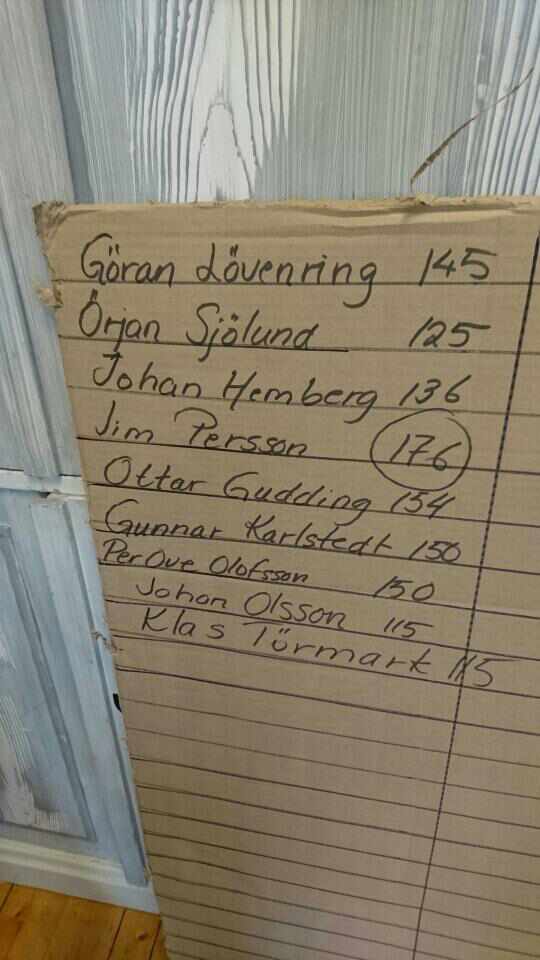 Göran Lövenring 145
Örjan Sjölund 125
Johan Hemberg 136
Jim Persson 176
Ottar Gudding 154
Gunnar Karlstedt 150
Per Ove Olofsson 150
Johan Olsson 115
Klas Törmark 115